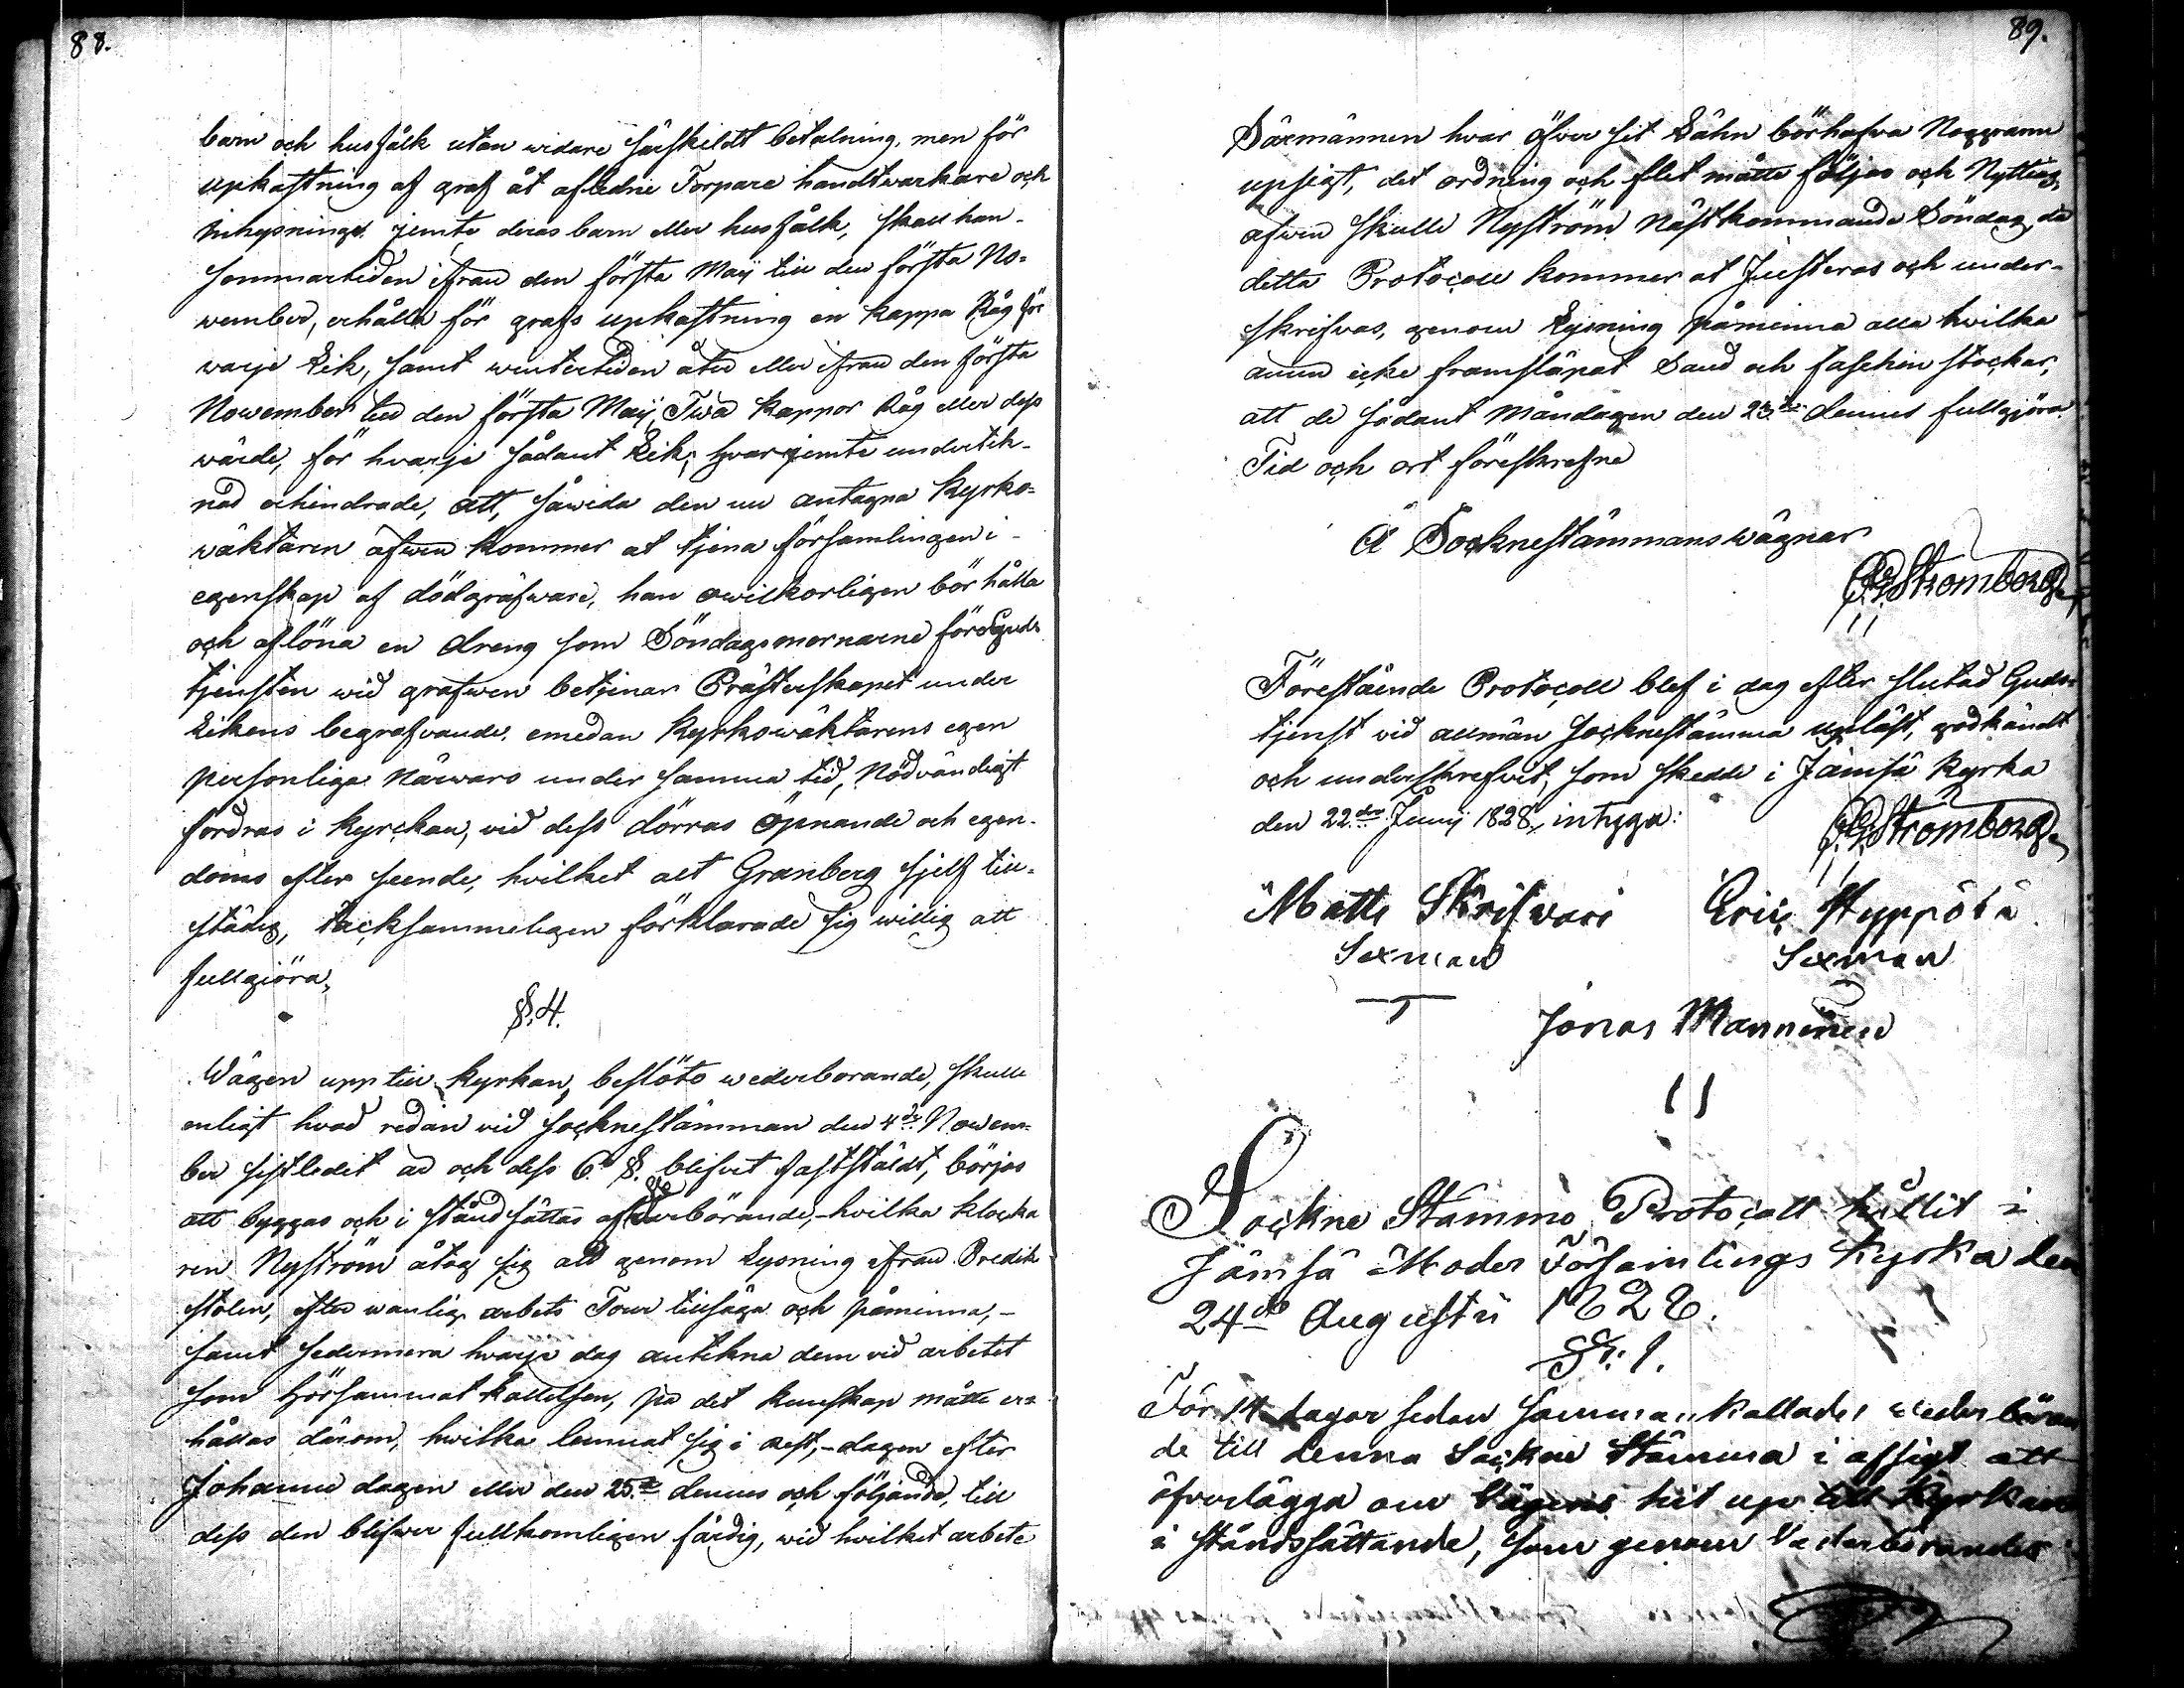 88.
barn och husfålk utan widare särskildt betalning, men för
upkastning af graf åt aflidne Torpare handtwerkare och
Inhysningar jemte deras barn eller husfålk, skall han
sommartiden ifrån den första Maij till den första No-
wember, erhålla för grafs upkastning en kappa Råg för
warje Lik, samt wintertiden åter eller ifrån den första
November till den första Maij, Twå kappor Råg eller dess
wärde, för hvarje sådant Lik; hvarjemte underteck-
nad erhindrade, att, såwida den nu antagna Kyrko-
wäktaren äfwen kommer at tjena församlingen i
egenskap af dödgräfware, han owilkorligen bör hålla
och aflöna en dreng som Söndagsmornarne före Guds
tjensten wid grafwen betjenar Prästerskapet under
Likens begrafvande, emedan Kyrkowäktarens egen
personliga närwaro under samma tid, Nödvändigt
fordras i Kyrckan, vid dess dörras öpnande och egen-
doms efter seende, hvilket alt Granberg sjelf till-
städes, tacksammeligen förklarade sig willig att
fullgiöra,
§. 4.
Wägen upp till Kyrkan, beslöto wederborande, skulle
enligt hvad redan vid socknestämman den 4de Novem-
ber sistledit år och dess 6. §. blifvit faststäldt, börjas
att byggas och i stånd sättas af wederbörande, hvilka klocka
ren Nyström åtog sig att genom Lysning ifrån Predik-
stolen, efter wanlig arbets Tour tillsäga och påminna,
samt sedermera hvarje dag anteckna dem vid arbetet
som hörsammat kallelsen, på det kunskap måtte er-
hållas därom, hwilka lemnat sig i rest, dagen efter
Johanne dagen eller den 25te dennes och följande, till
dess den blifwer fullkomligen färdig, wid hvilket arbete
89.
Säxmännen hvar öfver sit Låhn bör hafva Noggrann
upsigt, det ordning och flit måtte följas och Nyttjas,
äfwen skulle Nyström Nästkommande Söndag då
detta Protocoll kommer at Justeras och under-
skrifvas, genom Lysning påminna alla hvilka
ännu icke framsläpat Sand och faschin stockar,
att de sådant Måndagen den 23de dennes fullgjöra.
Tid och ort föreskrefne
Å Socknestämmans wägnar
Strömborg
Förestående Protocoll blef i dag efter slutad Guds-
tjenst vid allmän socknestämma upläst, godkändt
och underskrefvet, som skedde i Jämsä Kyrka
den 22dra Junij 1828, intyga:
Strömborg
Matts Skrifvari Eric Hyppölä
Sexman Sexman
Jonas Manninen
Sockne Stämmo Protocoll hållit i
Jämsä Moder Församlings Kyrka den
24de Augustii 1828.
§. 1.
För 14 dagar sedan sammankallades wederböran
de till denna Sockne Stämma i afsigt att
öfverlägga om Vägens hit upp till Kyrkan
i ståndsättande, som genom Vederbörandes